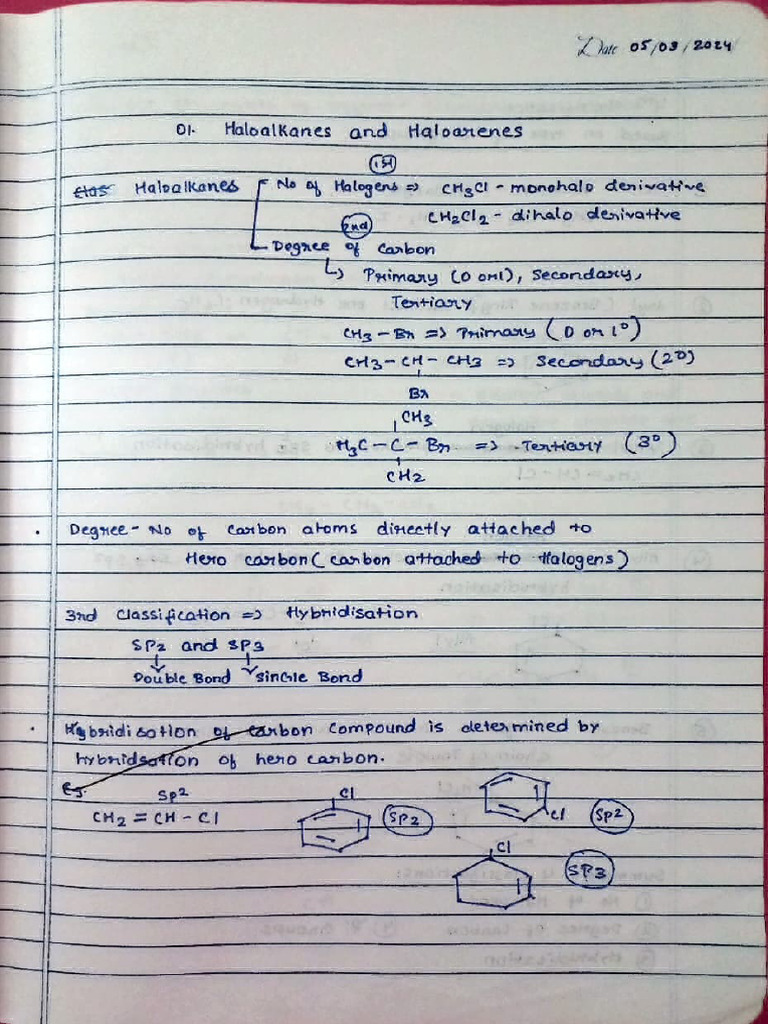 Date 05/03/2024
01. Haloalkanes and Haloarenes
1st
Haloalkanes No of Halogens => CH3Cl - monohalo derivative
CH2Cl2 - dihalo derivative
2nd
Degree of Carbon
↳ Primary (0 or 1), Secondary,
Tertiary
CH3 - Br => Primary (0 or 1°)
CH3 - CH - CH3 => Secondary (2°)
Br
CH3
H3C - C - Br => Tertiary (3°)
CH2
Degree - No of Carbon atoms directly attached to
Hero carbon (carbon attached to Halogens)
3rd Classification => Hybridisation
SP2 and SP3
Double Bond Single Bond
Hybridisation of Carbon Compound is determined by
hybridsation of hero carbon.
Eg. SP2
CH2 = CH - Cl
Cl SP2
Cl SP2
Cl SP3